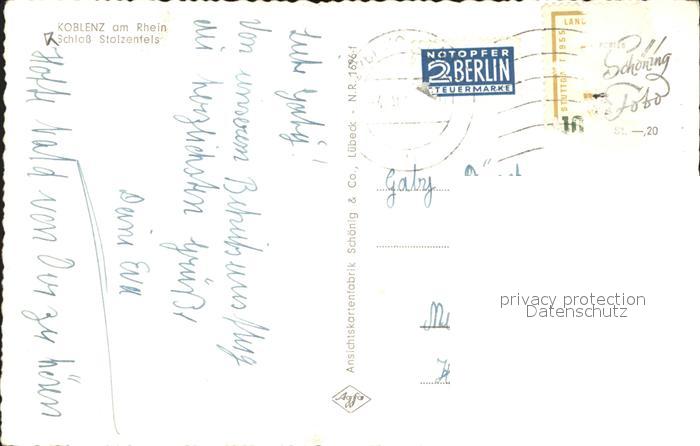 KOBLENZ am Rhein
Schloß Stolzenfels
Liebe Gaby!
Von unserem Betriebsausflug
die herzlichsten Grüße
Deine Eva
Hoffe bald von Dir zu hören
Ansichtskartenfabrik Schöning & Co., Lübeck - N.R. 1696-1
NOTOPFER
2 BERLIN
STEUERMARKE
LAND
STUTTGART 1955
Schöning
Foto
St. —,20
Gaby
privacy protection
Datenschutz
Agfa